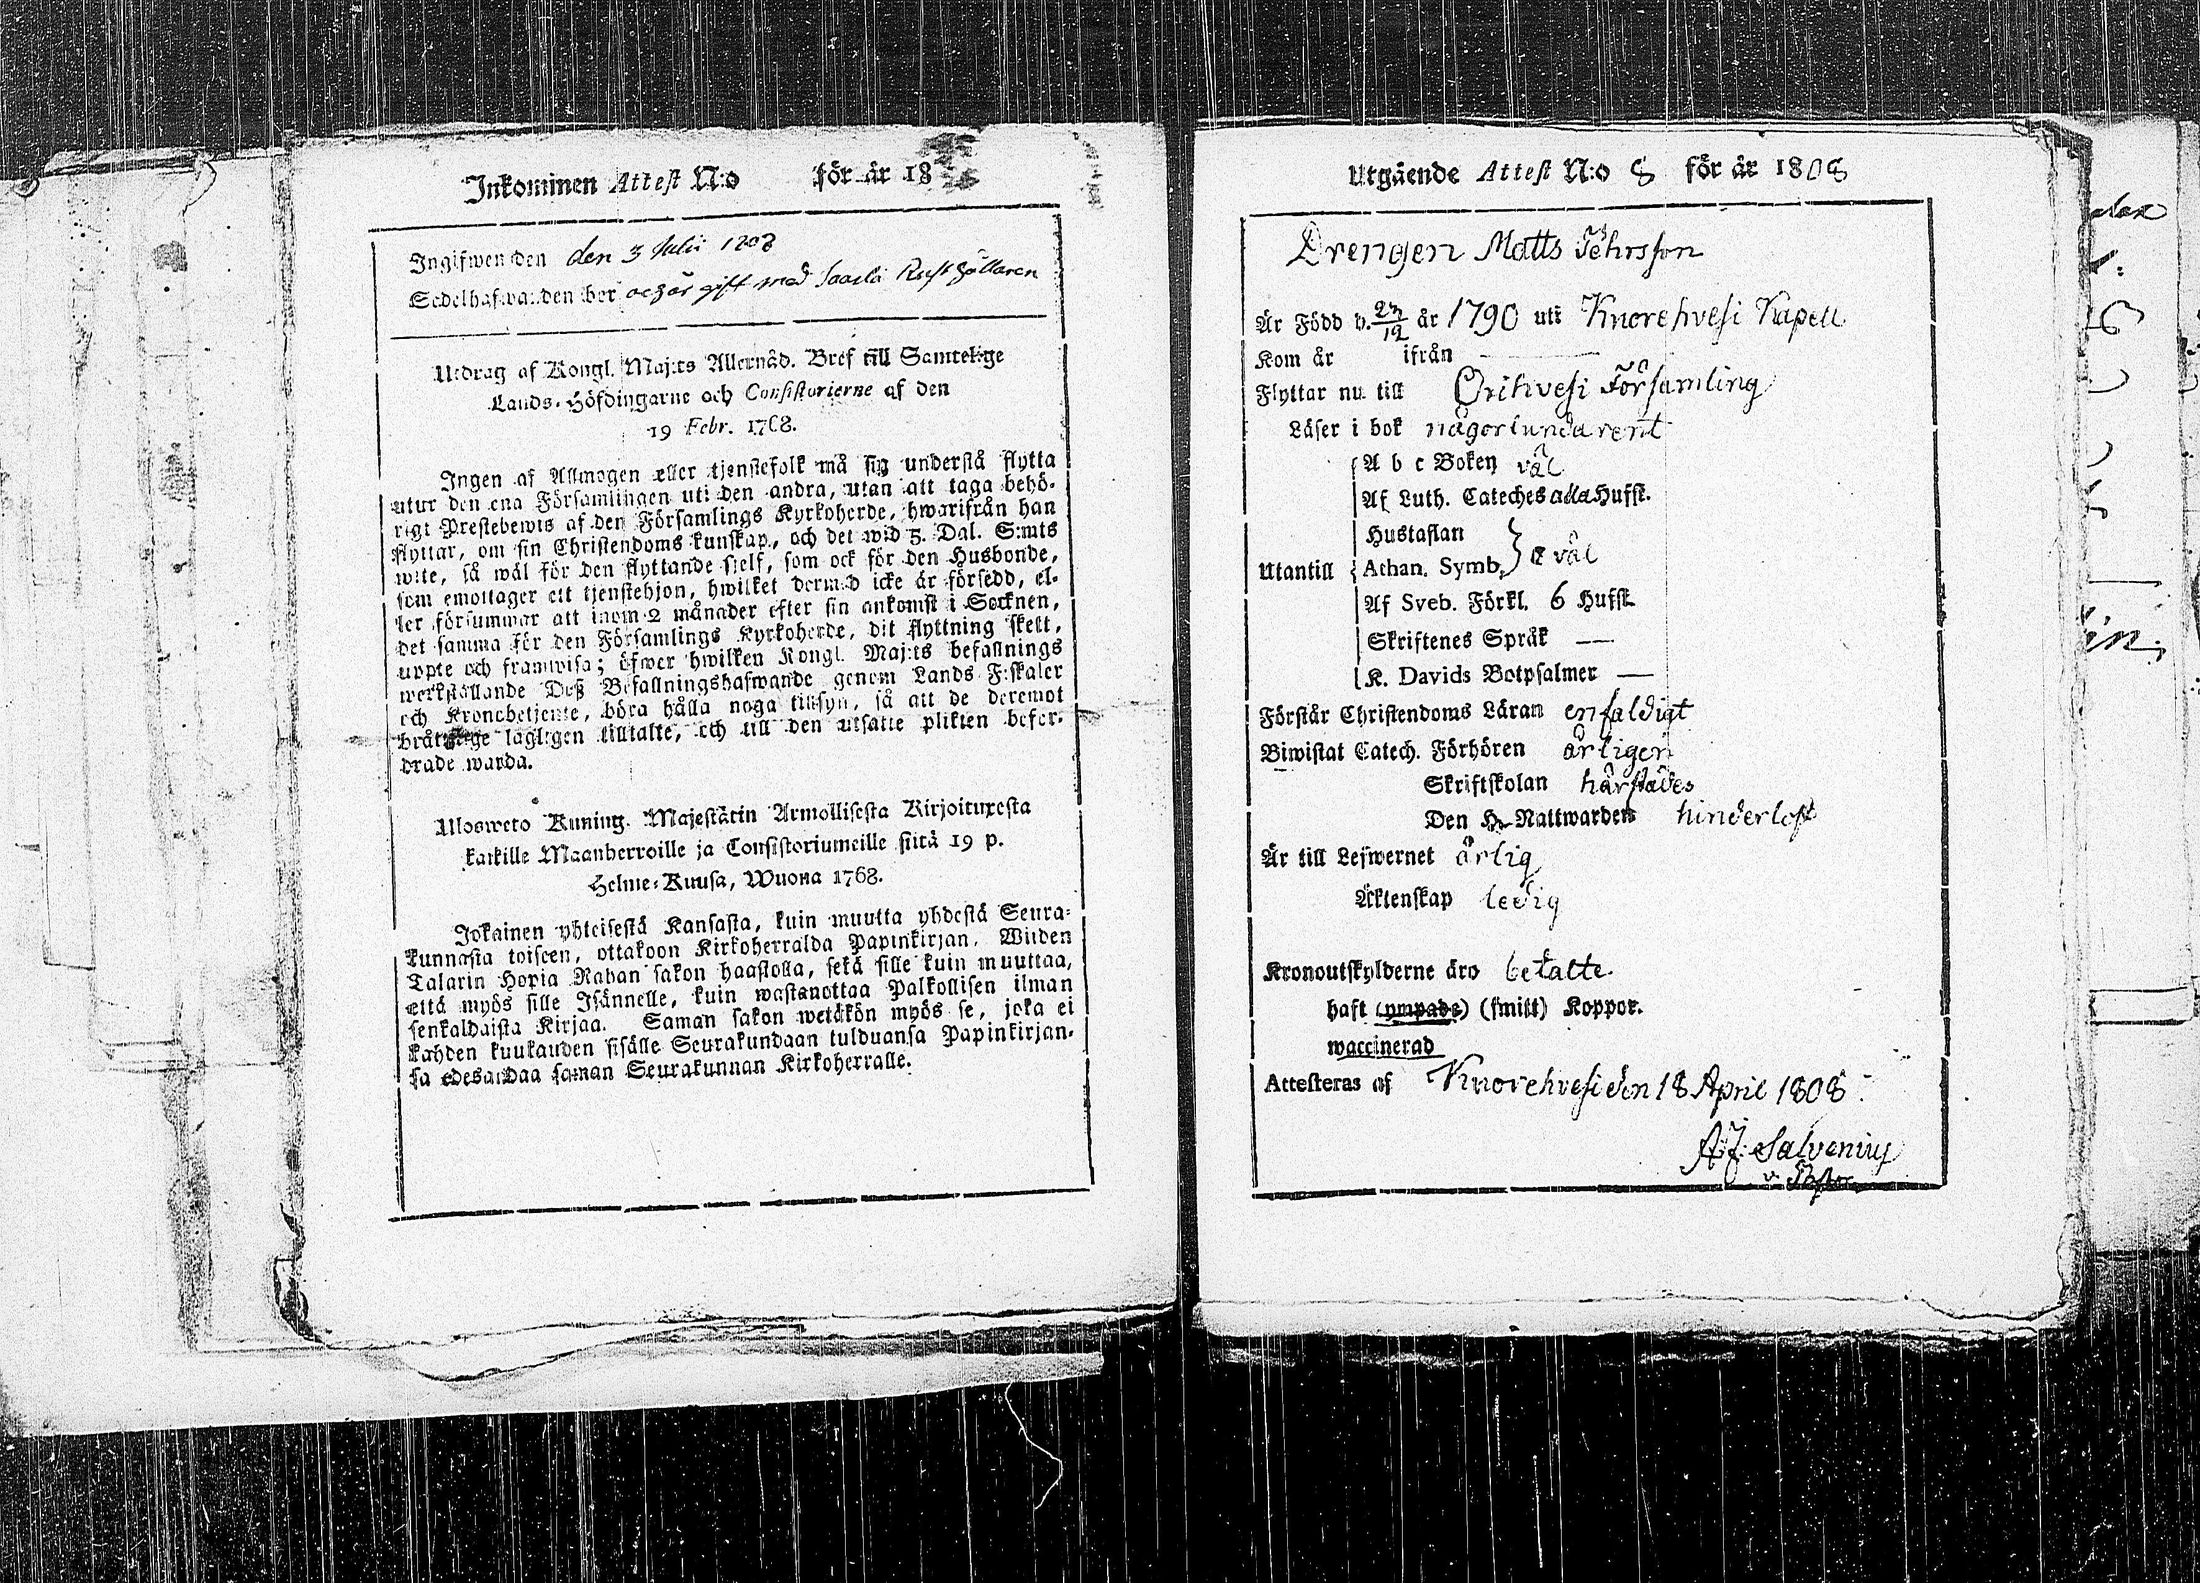 Inkommen Attest N:o för år 18
Ingifwen den den 3 Julii 1808
Sedelhafwanden bor och är gift med Rusthållaren
Utdrag af Kongl. Maj:ts Allernåd. Bref till Samtelige
Lands-Höfdingarne och Consistorierne af den
19 Febr. 1768.
Ingen af Allmogen eller tjenstefolk må sig understå flytta
utur den ena Församlingen uti den andra, utan att taga behö-
rigt Prestebewis af den Församlings Kyrkoherde, hwarifrån han
flyttar, om sin Christendoms kunskap, och det wid 5. Dal. S:mts
wite, så wäl för den flyttande sjelf, som ock för den Husbonde,
som emottager ett tjenstehjon, hwilket dermed icke är försedd, el-
ler försummar att inom 2 månader efter sin ankomst i Socknen,
det samma för den Församlings Kyrkoherde, dit flyttning skett,
uppte och framwisa; öfwer hwilken Kongl. Maj:ts befallnings
werkställande Deß Befallningshafwande genom Lands-Fiskaler
och Kronobetjente, böra hålla noga tillsyn, så att de deremot
bråtslige lagligen tilltalte, och till den utsatte plikten befor-
drade warda.
Ulosweto Kuning. Majestätin Armollisesta Kirjoituxesta
kaikille Maanherroille ja Consistoriumeille siitä 19 p.
Helme-Kuusa, Wuona 1768.
Jokainen yhteisestä Kansasta, kuin muutta yhdestä Seura-
kunnasta toiseen, ottakoon Kirkoherralda Papinkirjan, Wiiden
Talarin Hopia Rahan sakon haastolla, sekä sille kuin muuttaa,
että myös sille Isännelle, kuin wastanottaa Palkollisen ilman
senkaldaista Kirjaa. Saman sakon wetäkön myös se, joka ei
kahden kuukauden sisälle Seurakundaan tulduansa Papinkirjan-
sa edesandaa saman Seurakunnan Kirkoherralle.
Utgående Attest N:o 8 för år 1808
Drengen Matts Pehrsson
Är Född d. 27/12 år 1790 uti Kuorehvesi Kapell
Kom år ifrån
Flyttar nu till Orihvesi Församling
Läser i bok någorlunda rent
A b c Boken väl
Af Luth. Cateches alla Hufst.
Hustaflan
Utantill Athan. Symb. väl
Af Sveb. Förkl. 6 Hufst.
Skriftenes Språk —
K. Davids Botpsalmer —
Förstår Christendoms Läran enfaldigt
Biwistat Catech. Förhören årligen
Skriftskolan härstädes
Den H. Nattwarden hinderlöst
Är till Lefwernet ärlig
Äktenskap ledig
Kronoutskylderne äro betalte
haft (ympade) (smitt) Koppor.
waccinerad
Attesteras af Kuorehvesi den 18 April 1808
A.J. Salvenius
v. Pastor